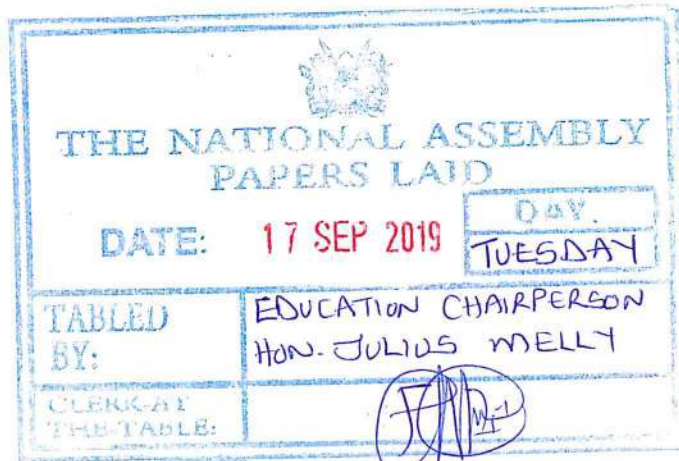 THE NATIONAL ASSEMBLY
PAPERS LAID
DATE: 17 SEP 2019
DAY.
TUESDAY
TABLED BY:
EDUCATION CHAIRPERSON
HON. JULIUS MELLY
CLERK-AT THE-TABLE: